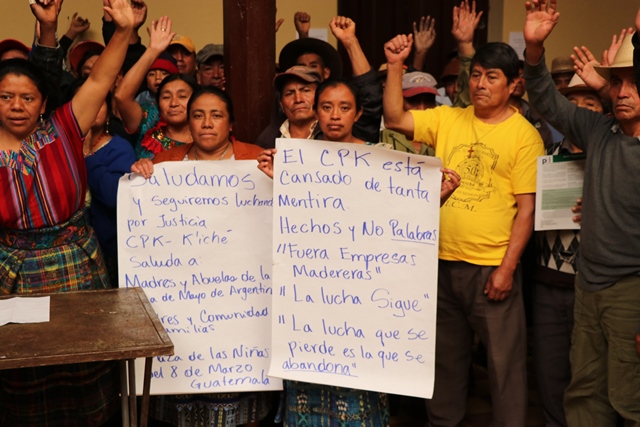 Saludamos
y seguiremos luchand
por Justicia
CPK- K'iché
Saluda a:
Madres y Abuelas de la
a de Mayo de Argentin
res y Comunidad
amilias
aza de las Niñas
el 8 de Marzo
Guatemala
El CPK está
Cansado de tanta
Mentira
Hechos y No Palabras
"Fuera Empresas
Madereras"
"La lucha Sigue"
"La lucha que se
pierde es la que se
abandona"